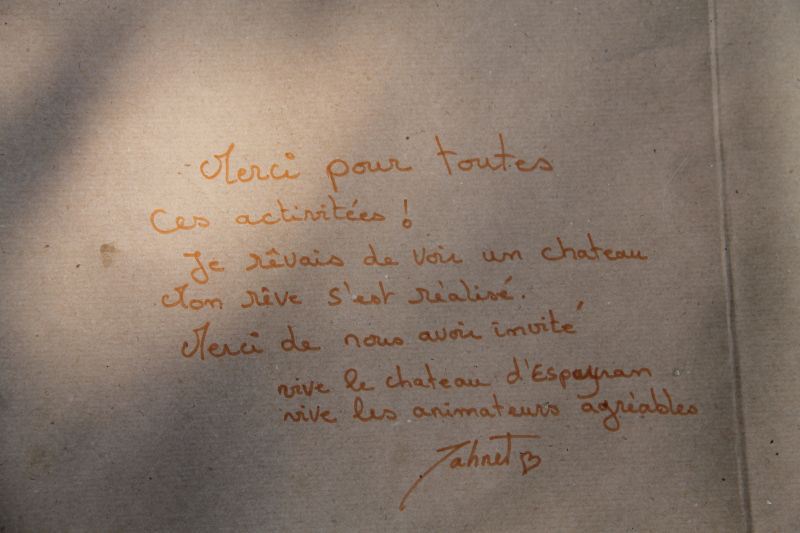 Merci pour toutes
Ces activitées !
Je rêvais de voir un chateau
Mon rêve s'est réalisé.
Merci de nous avoir invité
vive le chateau d'Espeyran
vive les animateurs agréables